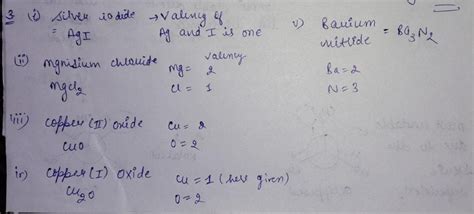 3 (i) Silver iodide → Valency of
= AgI Ag and I is one
(ii) Mgnisium chloride valency
Mg = 2
MgCl2 Cl = 1
(iii) Copper (II) Oxide Cu = 2
CuO O = 2
iv) Copper (I) Oxide Cu = 1 (here given)
Cu2O O = 2
v) Barium
nitride = Ba3N2
Ba = 2
N = 3